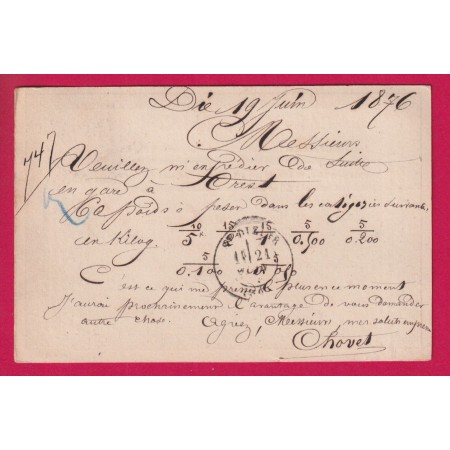 Die 19 Juin 1876
Messieurs
747
Veuillez m'expédier de suite
en gare à Crest
Poids à peser dans les catégories suivants
en Kilog 10 15 15 5 5
5 K. 1 0.500 0.200
5 5
0.100
21
C'est ce qui me presse plus en ce moment
J'aurai prochainement l'avantage de vous demander
autre chose. Agréez, Messieurs, mes salut empress
Chovet